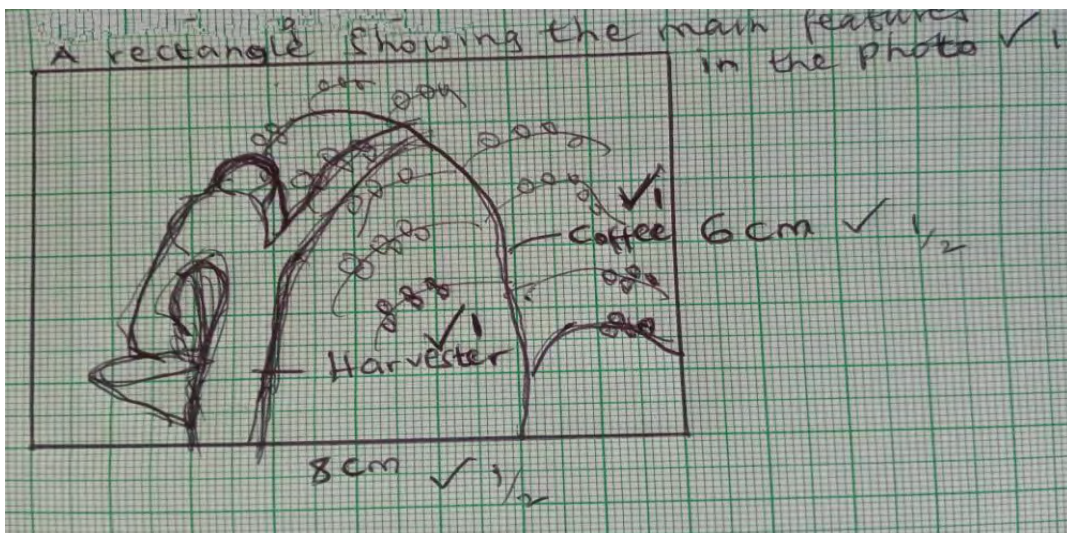 A rectangle showing the main features
in the photo ✓ 1
✓ 1
Coffee 6 cm ✓ 1/2
✓ 1
Harvester
8 cm ✓ 1/2